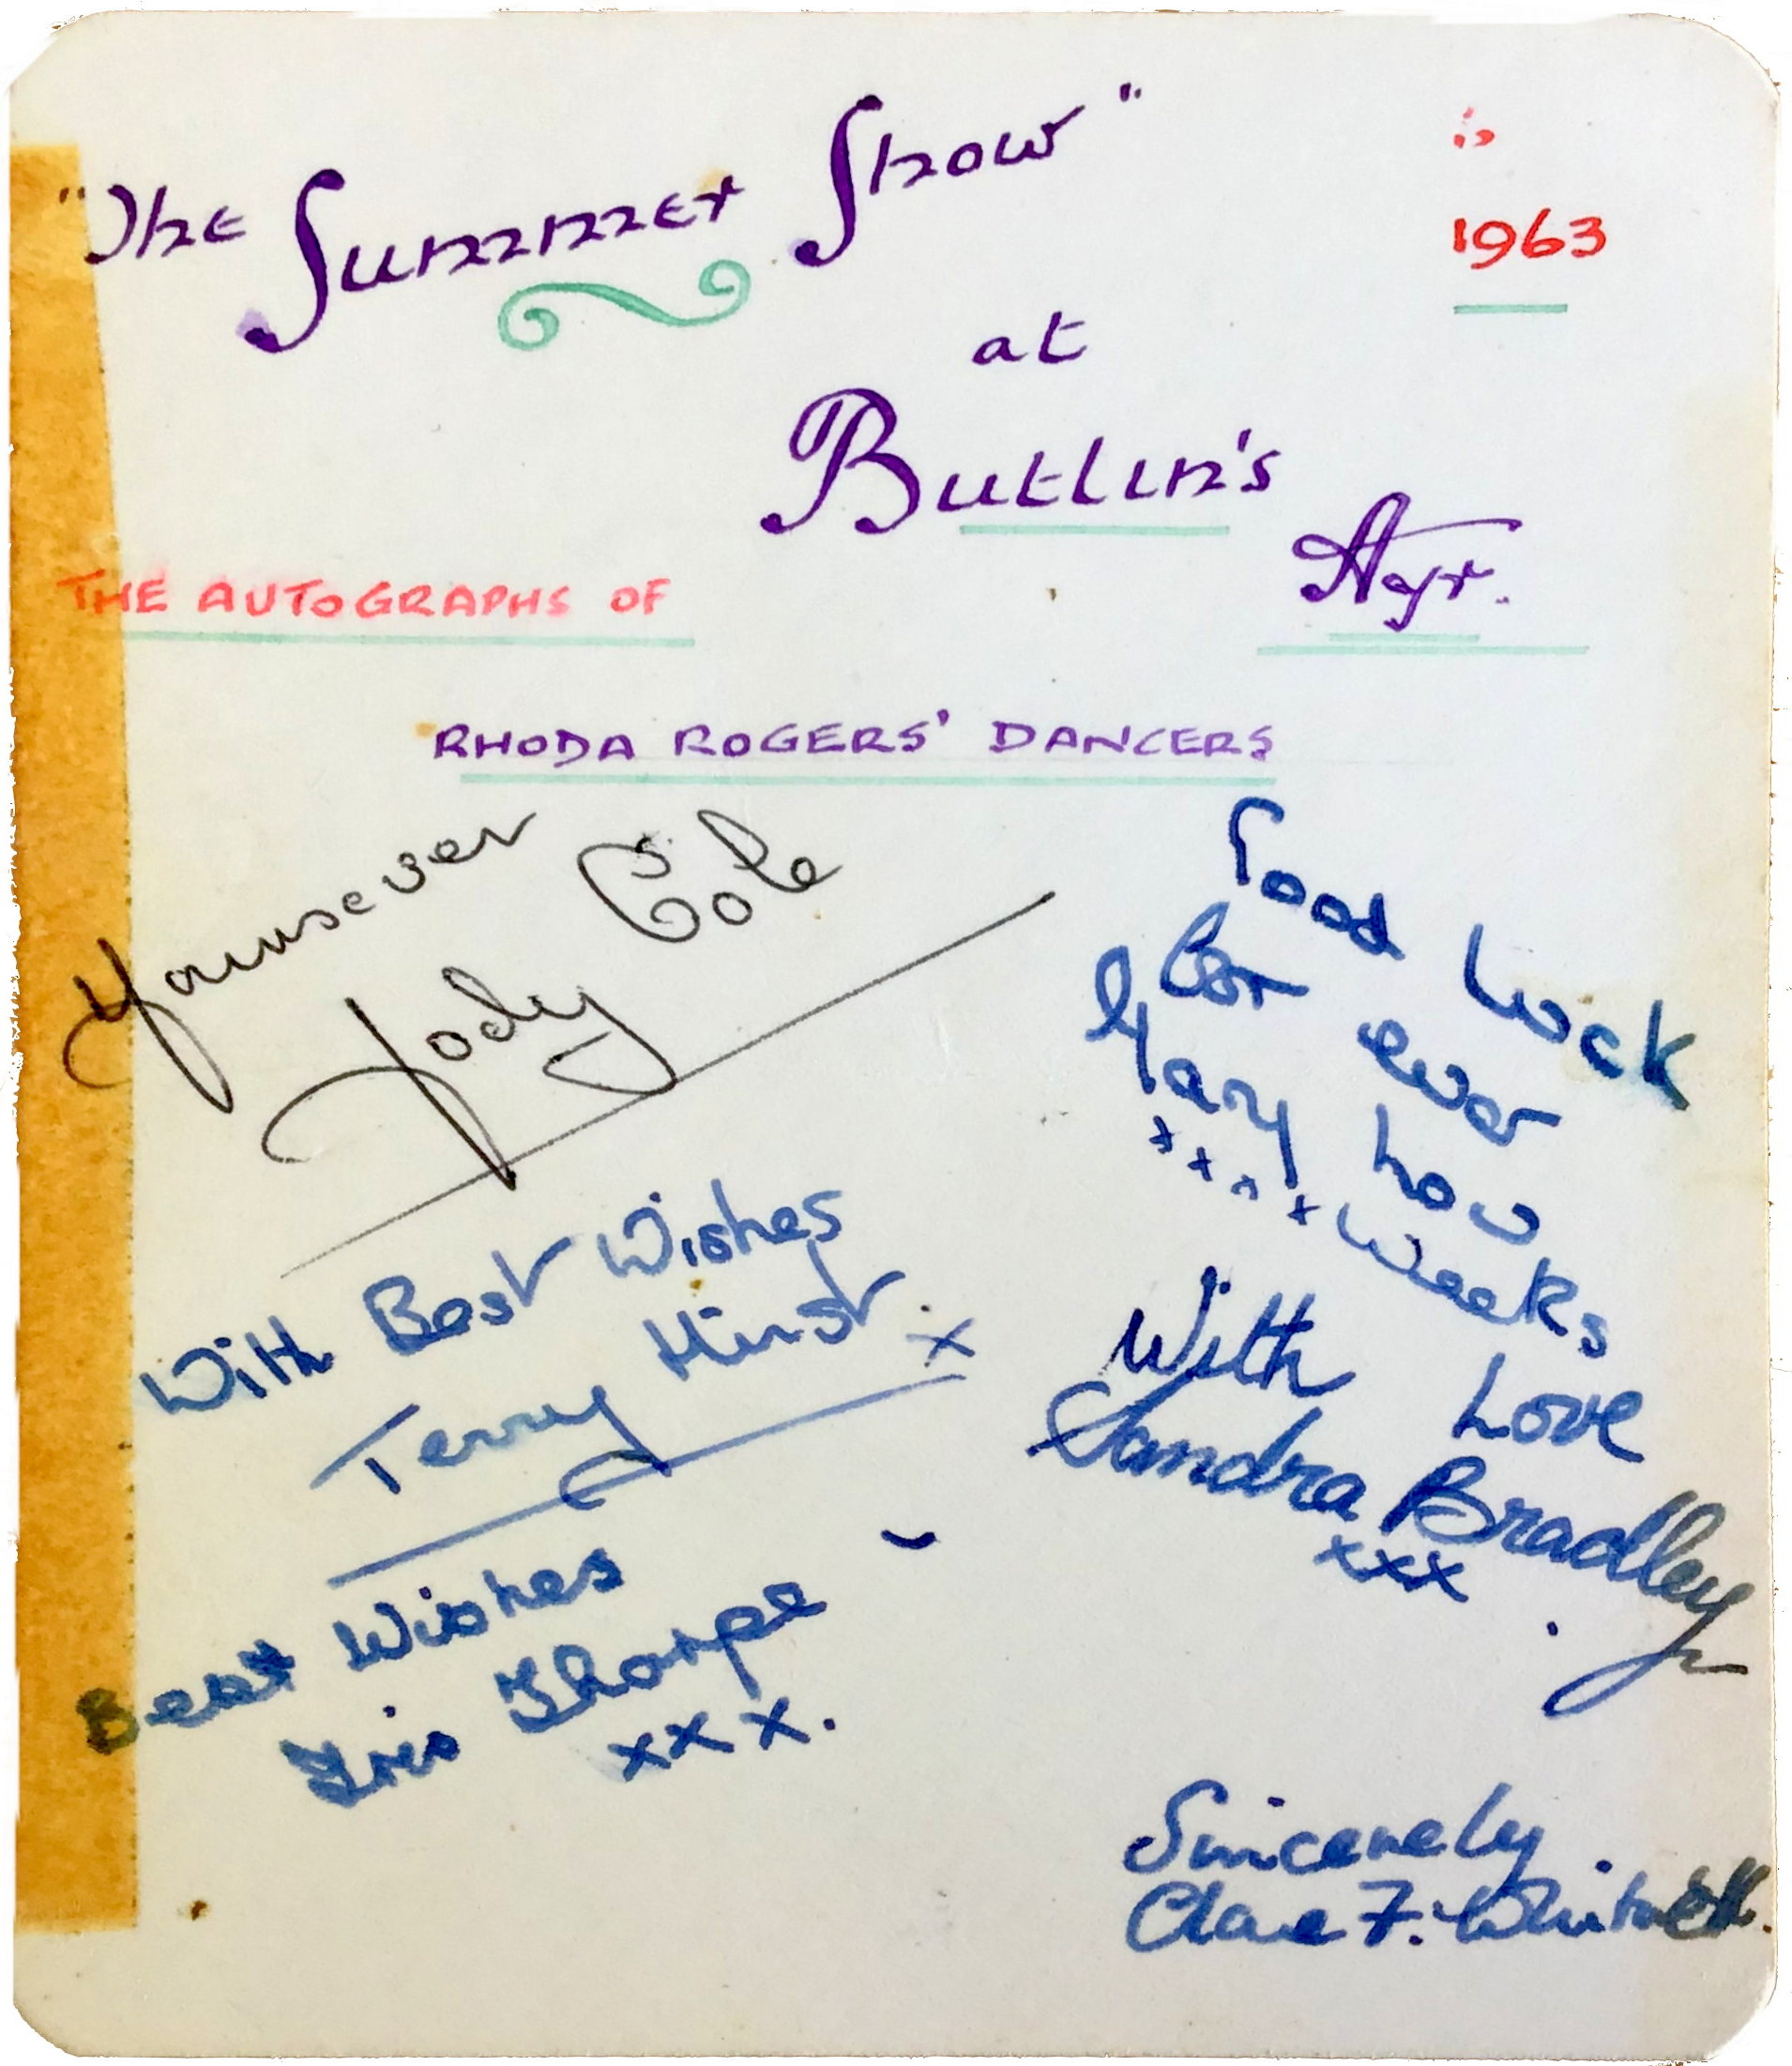 "The Summer Show"
in
1963
at
Butlin's
Ayr.
THE AUTOGRAPHS OF
RHODA ROGERS' DANCERS
Yours ever
Jody Cole
With Best Wishes
Terry Hirst. x
Best Wishes
Iris Thorpe
xxx.
Good Luck
For ever
Mary Lou
Weeks
With Love
Sandra Bradley
xxx
Sincerely
Clare F.